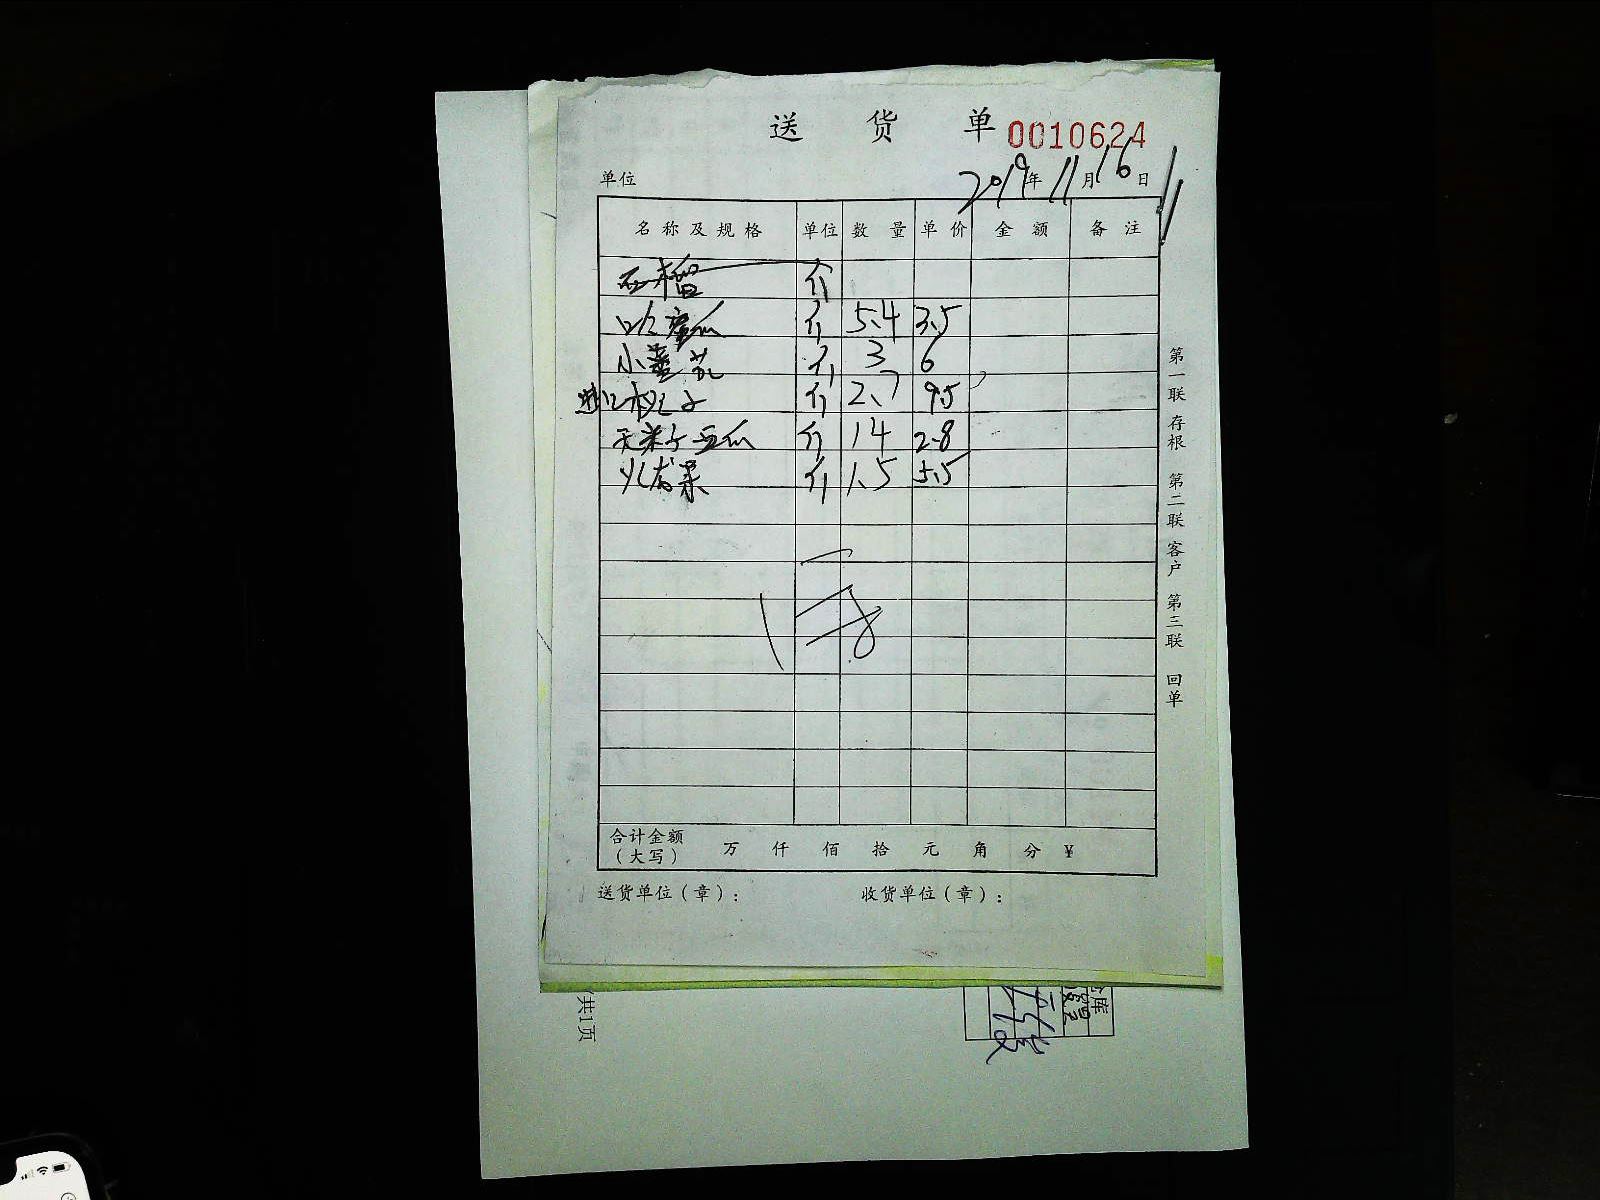 送 货 单 0010624
单位 2019年11月16日
名称及规格 单位 数量 单价 金额 备注
石榴 斤
哈蜜瓜 斤 5.4 3.5
小 斤 3 6
进口 子 斤 2.7 9.5
无 子西瓜 斤 14 2.8
火龙果 斤 1.5 5.5
第一联 存根 第二联 客户 第三联 回单
合计金额
（大写） 万 仟 佰 拾 元 角 分 ¥
送货单位（章）： 收货单位（章）：
共1页